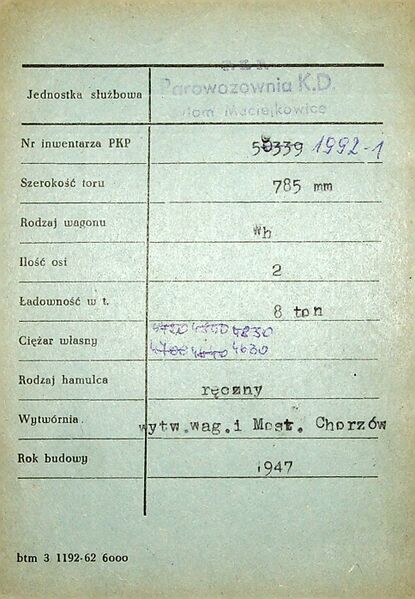 P.K.P.
Parowozownia K.D.
Bytom Maciejkowice
Jednostka służbowa
Nr inwentarza PKP 50339 1992-1
Szerokość toru 785 mm
Rodzaj wagonu Wh
Ilość osi 2
Ładowność w t. 8 ton
4830
Ciężar własny 4630
Rodzaj hamulca ręczny
Wytwórnia wytw.wag.i Most. Chorzów
Rok budowy 1947
btm 3 1192-62 6000